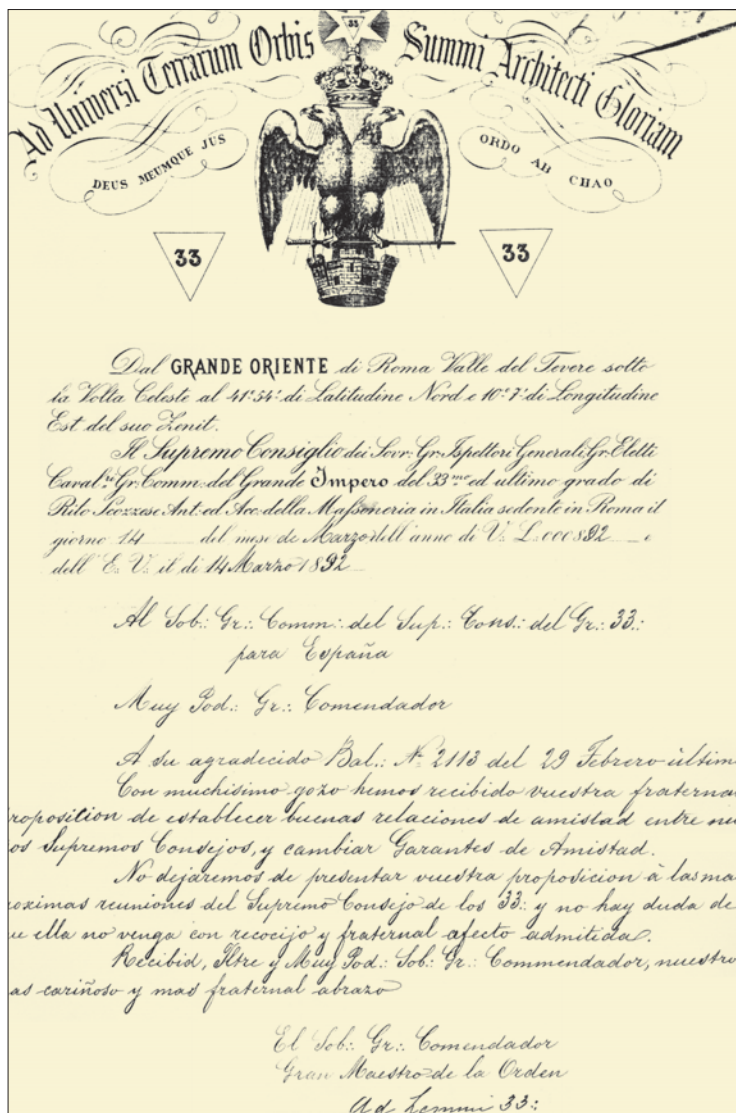 33
Ad Universi Terrarum Orbis Summi Architecti Gloriam
DEUS MEUMQUE JUS
ORDO AB CHAO
33
33
Dal GRANDE ORIENTE di Roma Valle del Tevere sotto
la Volta Celeste al 41°.54'. di Latitudine Nord e 10°.7'. di Longitudine
Est del suo Zenit.
Il Supremo Consiglio dei Sovr∴ Gr∴ Ispettori Generali Gr∴ Eletti
Caval.ri Gr∴ Comm∴ del Grande Impero del 33mo ed ultimo grado di
Rito Scozzese Ant∴ ed Acc∴ della Massoneria in Italia sedente in Roma il
giorno 14 del mese de Marzo dell'anno di V∴ L∴ 000892 e
dell'E∴ V∴ il di 14 Marzo 1892
Al Sob∴ Gr∴ Comm∴ del Sup∴ Cons∴ del Gr∴ 33∴
para España
Muy Pod∴ Gr∴ Comendador
A su agradecido Bal∴ No 2113 del 29 Febrero ultim
Con muchisimo gozo hemos recibido vuestra fraterna
roposition de establecer buenas relaciones de amistad entre nu
os Supremos Consejos, y cambiar Garantes de Amistad.
No dejaremos de presentar vuestra proposicion à las ma
oximas reuniones del Supremo Consejo de los 33∴ y no hay duda de
ue ella no venga con recocijo y fraternal afecto admitida.
Recibid, Iltre y Muy Pod∴ Sob∴ Gr∴ Commendador, nuestro
as cariñoso y mas fraternal abrazo
El Sob∴ Gr∴ Comendador
Gran Maestro de la Orden
Ad Lemmi 33∴